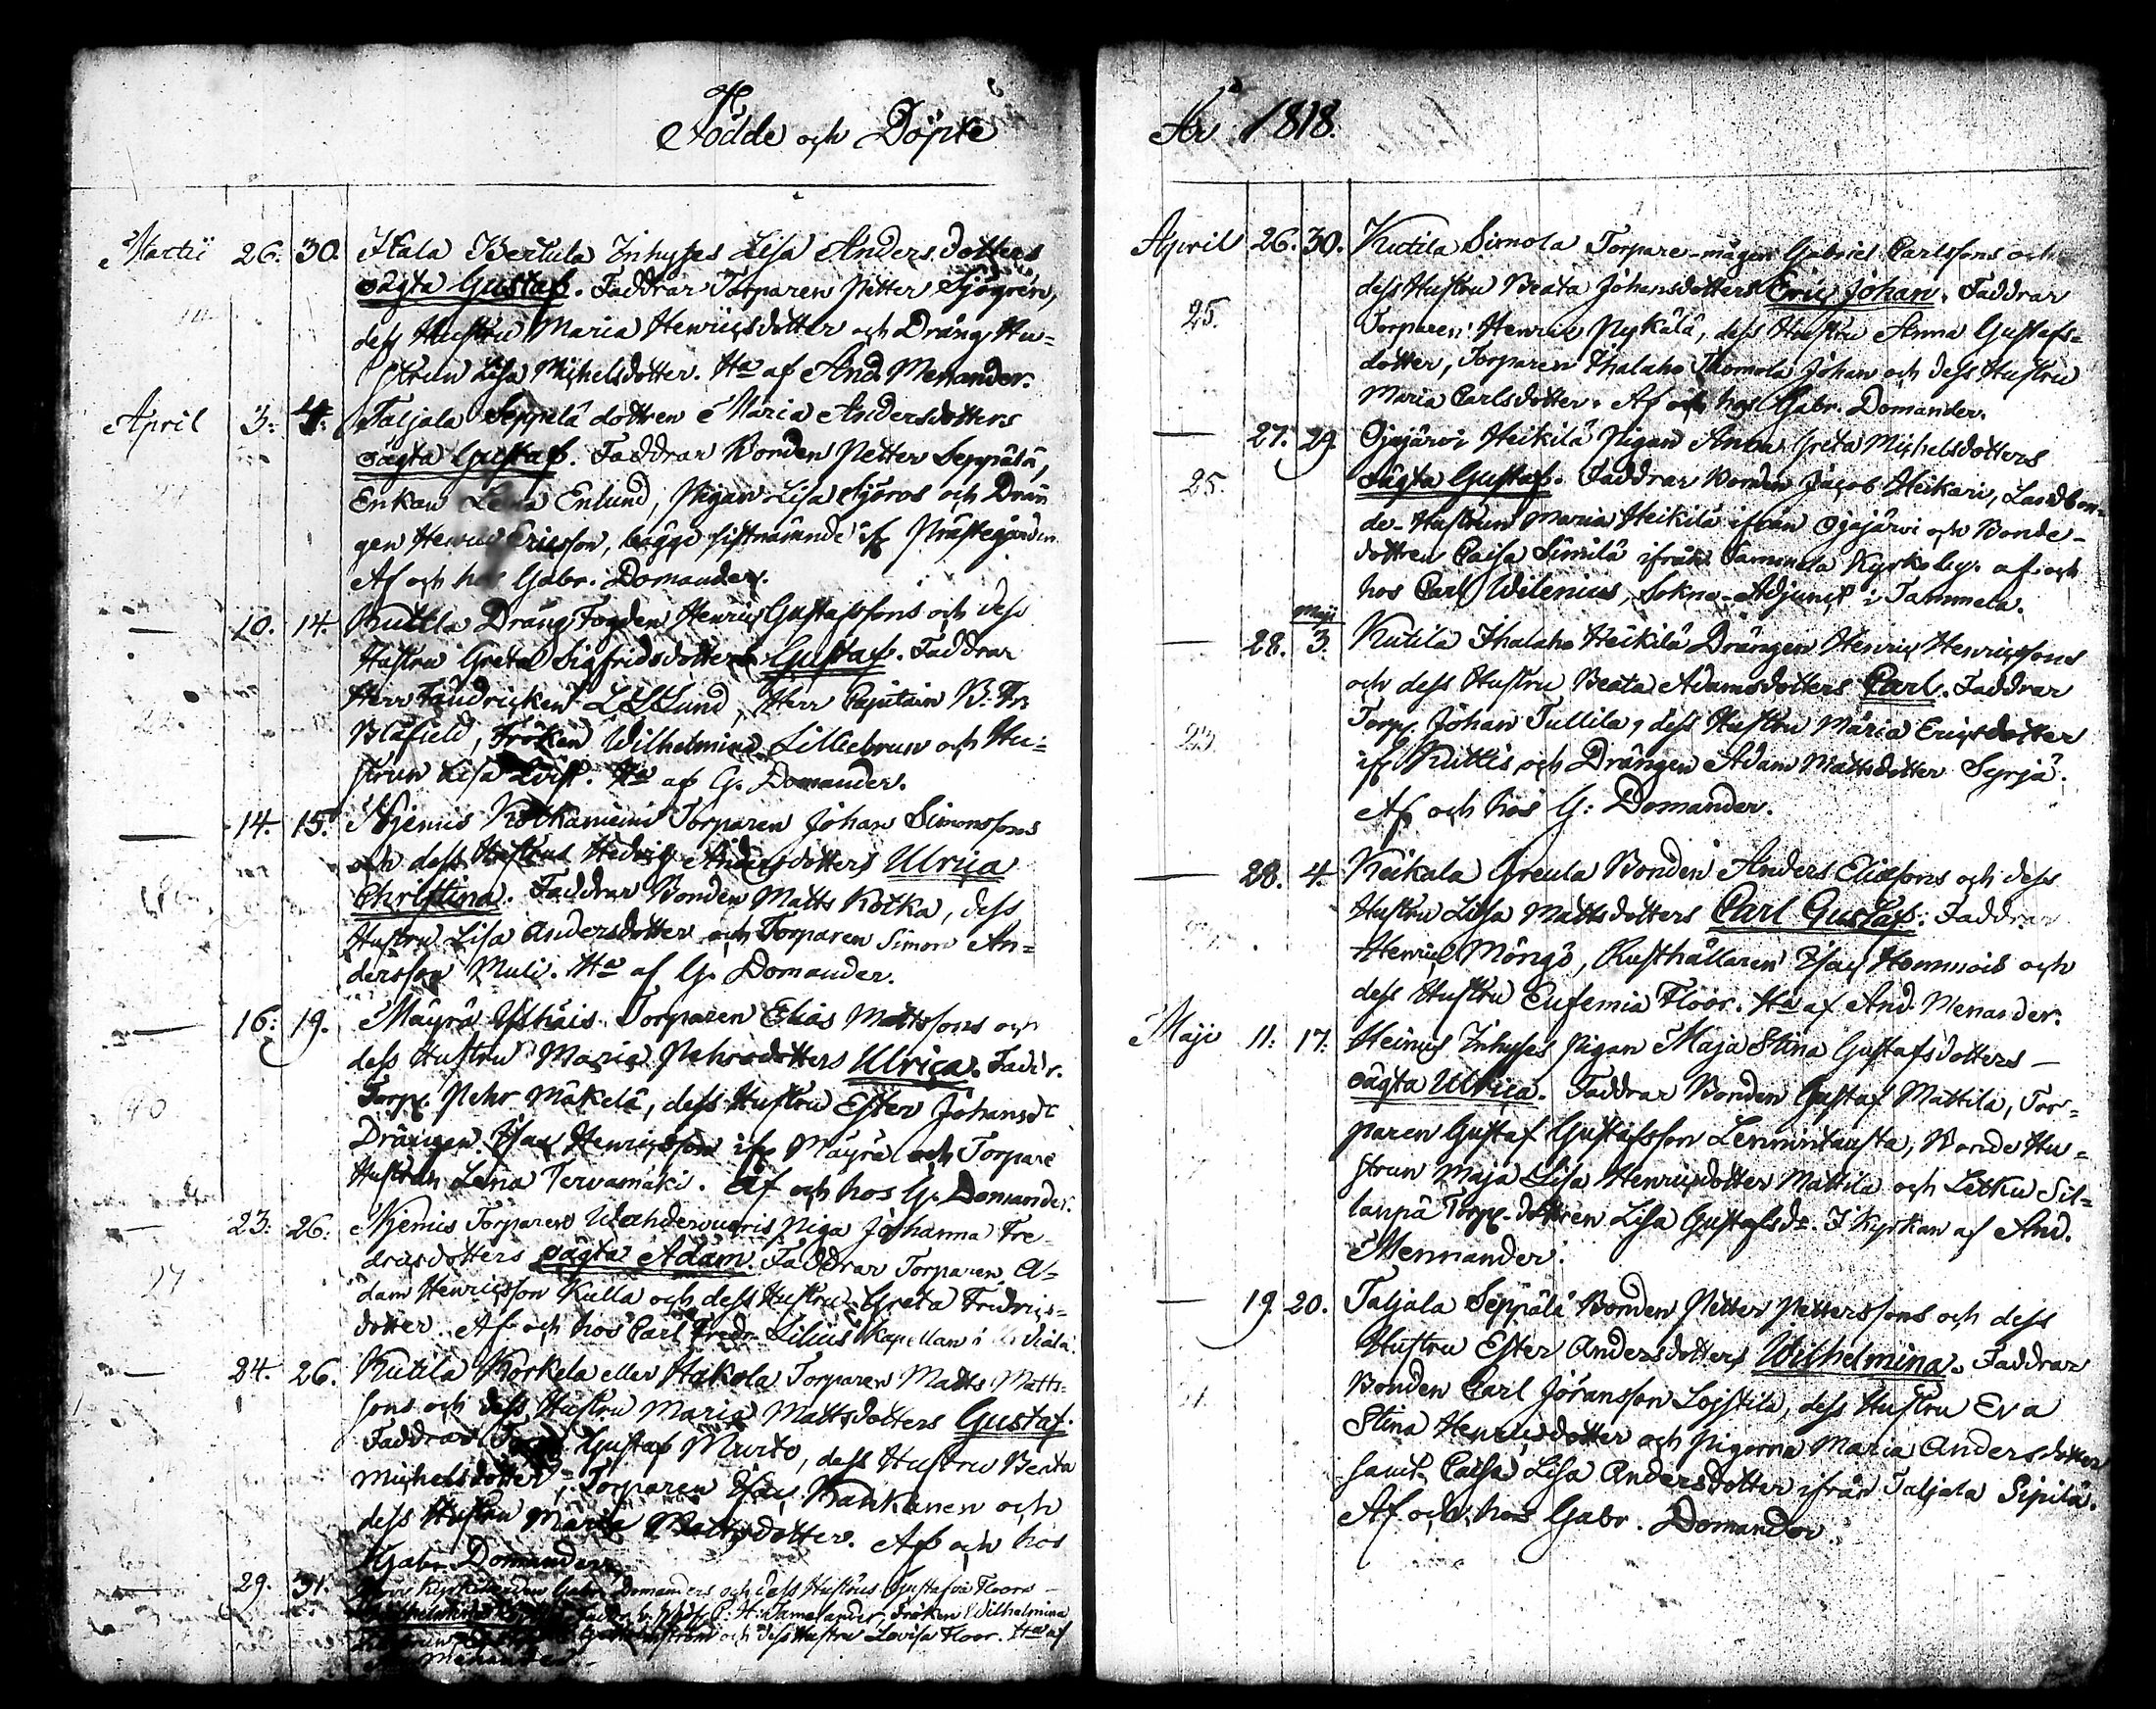 Födde och Döpte
Martii 26. 30. Itala Bertula Inhyses Lisa Andersdotters
oägta Gustaf. Faddrar Torparen Petter Sjögren,
dess Hustru Maria Henricsdotter och Dräng Hu-
strun Lisa Michelsdotter. Ha af And. Menander.
April 3. 4. Taljala Seppelä dottren Maria Andersdotters
oägta Gustaf. Faddrar Bonden Petter Seppälä,
Enkan Lena Enlund, Pigan Lisa Sjöros och Drän
gen Henric Ericsson, bägge sistnämnde if. Prästegården.
Af och hos Gabr. Domander.
— 10. 14. Kutila Dräng Fogden Henric Gustafssons och dess
Hustru Greta Sigfridsdotters Gustaf. Faddrar
Herr Fändricken Lund, Herr Capitain B. Fr.
Blåfield, Fröken Wilhelmina Lilliebrun och Hu-
strun Lisa Ha af G. Domander.
— 14. 15. Njemis Kotkaniemi Torparen Johan Simonssons
och dess Hustrus Hedvig Andersdotters Ulrica
Christina. Faddrar Bonden Matts Kotka, dess
Hustru Lisa Andersdotter och Torparen Simon An-
dersson Muli. Ha af G. Domander.
— 16. 19. Mäyrä Torparen Elias Mattssons och
dess Hustru Maria Pehrsdotters Ulrica. Faddr.
Torp. Pehr Mäkelä, dess Hustru Ester Johansdr
Drängen Isac Henricsson if. Mäyrä och Torpare
Hustrun Lena Tervamäki. Af och hos G. Domander.
— 23. 26. Njemis Torparen Wahdervuoris Piga Johanna Fre-
dricsdotters oägta Adam. Faddrar Torparen A-
dam Henricsson Kulla och dess Hustru Greta Fredrics-
dotter. Af och hos Carl Fredr. Lilius Kapellan i
— 24. 26. Kutila Körkela eller Hakola Torparen Matts Matts-
sons och dess Hustru Maria Mattsdotters Gustaf.
Faddrar Gustaf Murto, dess Hustru Beata
Michelsdotter, Torparen Isac Kankanen och
dess Hustru Maria Mattsdotter. Af och hos
Gabr. Domander.
— 29. 31. Gabr. Domanders och dess Hustrus Gustafva Floors
Tamelander, Fröken Wilhelmina
och dess Hustru Lovisa Floor. Ha af
Menander.
År 1818.
April 26. 30. Kutila Simola Torpare-mågen Gabriel Carlssons och
dess Hustru Beata Johansdotters Eric Johan. Faddrar
25. Torparen Henric Pykälä, dess Hustru Anna Gustafs-
dotter, Torparen Ihalaho Thomola Johan och dess Hustru
Maria Carlsdotter. Af och hos Gabr. Domander.
— 27. 29. Ojajärvi Heikilä Pigan Anna Greta Michelsdotters
25. oägta Gustaf. Faddrar Bonden Jacob Heikari, Landbon-
de-Hustrun Maria Heikilä ifrån Ojajärvi och Bonde-
dottren Caisa Simila ifrån Tammela Kyrkoby. af och
hos Carl Wilenius, Sokne-Adjunct i Tammela.
— 28. Maji 3. Kutila Ihalaho Heikilä Drängen Henric Henricssons
och dess Hustru Beata Adamsdotters Carl. Faddrar
23. Torp. Johan Tullila, dess Hustru Maria Ericsdotter
if. Kuttis och Drängen Adam Mattsdotter Syrjä.
Af och hos G: Domander.
— 28. 4. Keikala Greula Bonden Anders Eliæsons och dess
Hustru Lisa Mattsdotters Carl Gustaf. Faddrar
Henric Möngö, Rusthållaren Isac Hommois och
dess Hustru Eufemia Floor. Ha af And. Menander.
Maji 11. 17. Heinus Inhyses Pigan Maja Stina Gustafsdotters —
oägta Ulrica. Faddrar Bonden Gustaf Mattila, Tor-
paren Gustaf Gustafsson Lemmintausta, Bonde Hu-
strun Maja Lisa Henricsdotter Mattila och Letku Sil-
lanpä Torp. dottren Lisa Gustafsdr. I Kyrkan af And.
Mennander.
— 19. 20. Taljala Seppälä Bonden Petter Petterssons och dess
Hustru Ester Andersdotters Wilhelmina. Faddrar
Bonden Carl Jöransson Lojstila, dess Hustru Eva
Stina Henricsdotter och Pigorna Maria Andersdotter
samt Caisa Lisa Andersdotter ifrån Taljala Sipilä.
Af och hos Gabr. Domander.